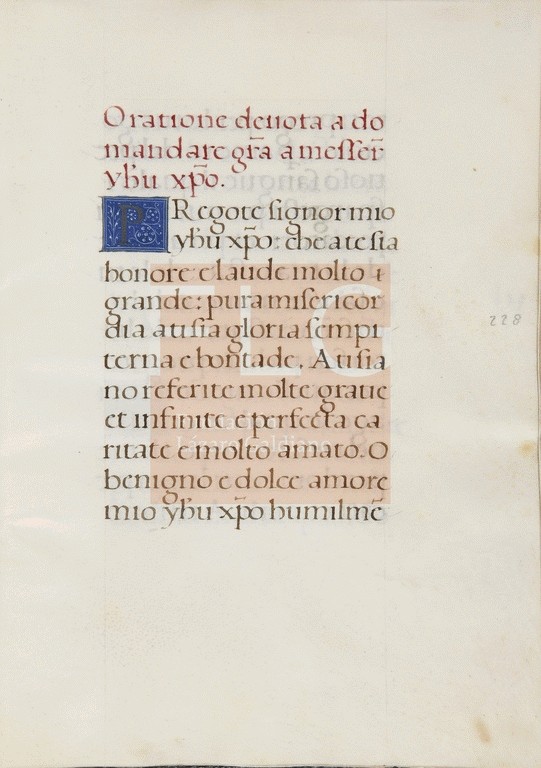 Oratione deuota a do
mandare gr̄a a messer
yh̄u xp̄o.
PRegote signor mio
yh̄u xp̄o: che a te sia
honore e laude molto ⁊
grande: pura misericor
dia a ti sia gloria sempi
terna e bontade. A ti sia
no referite molte gratie
et infinite e perfecta ca
ritate e molto amato. O
benigno e dolce amore
mio yh̄u xp̄o humilmē
228
FLG
Lázaro Galdiano